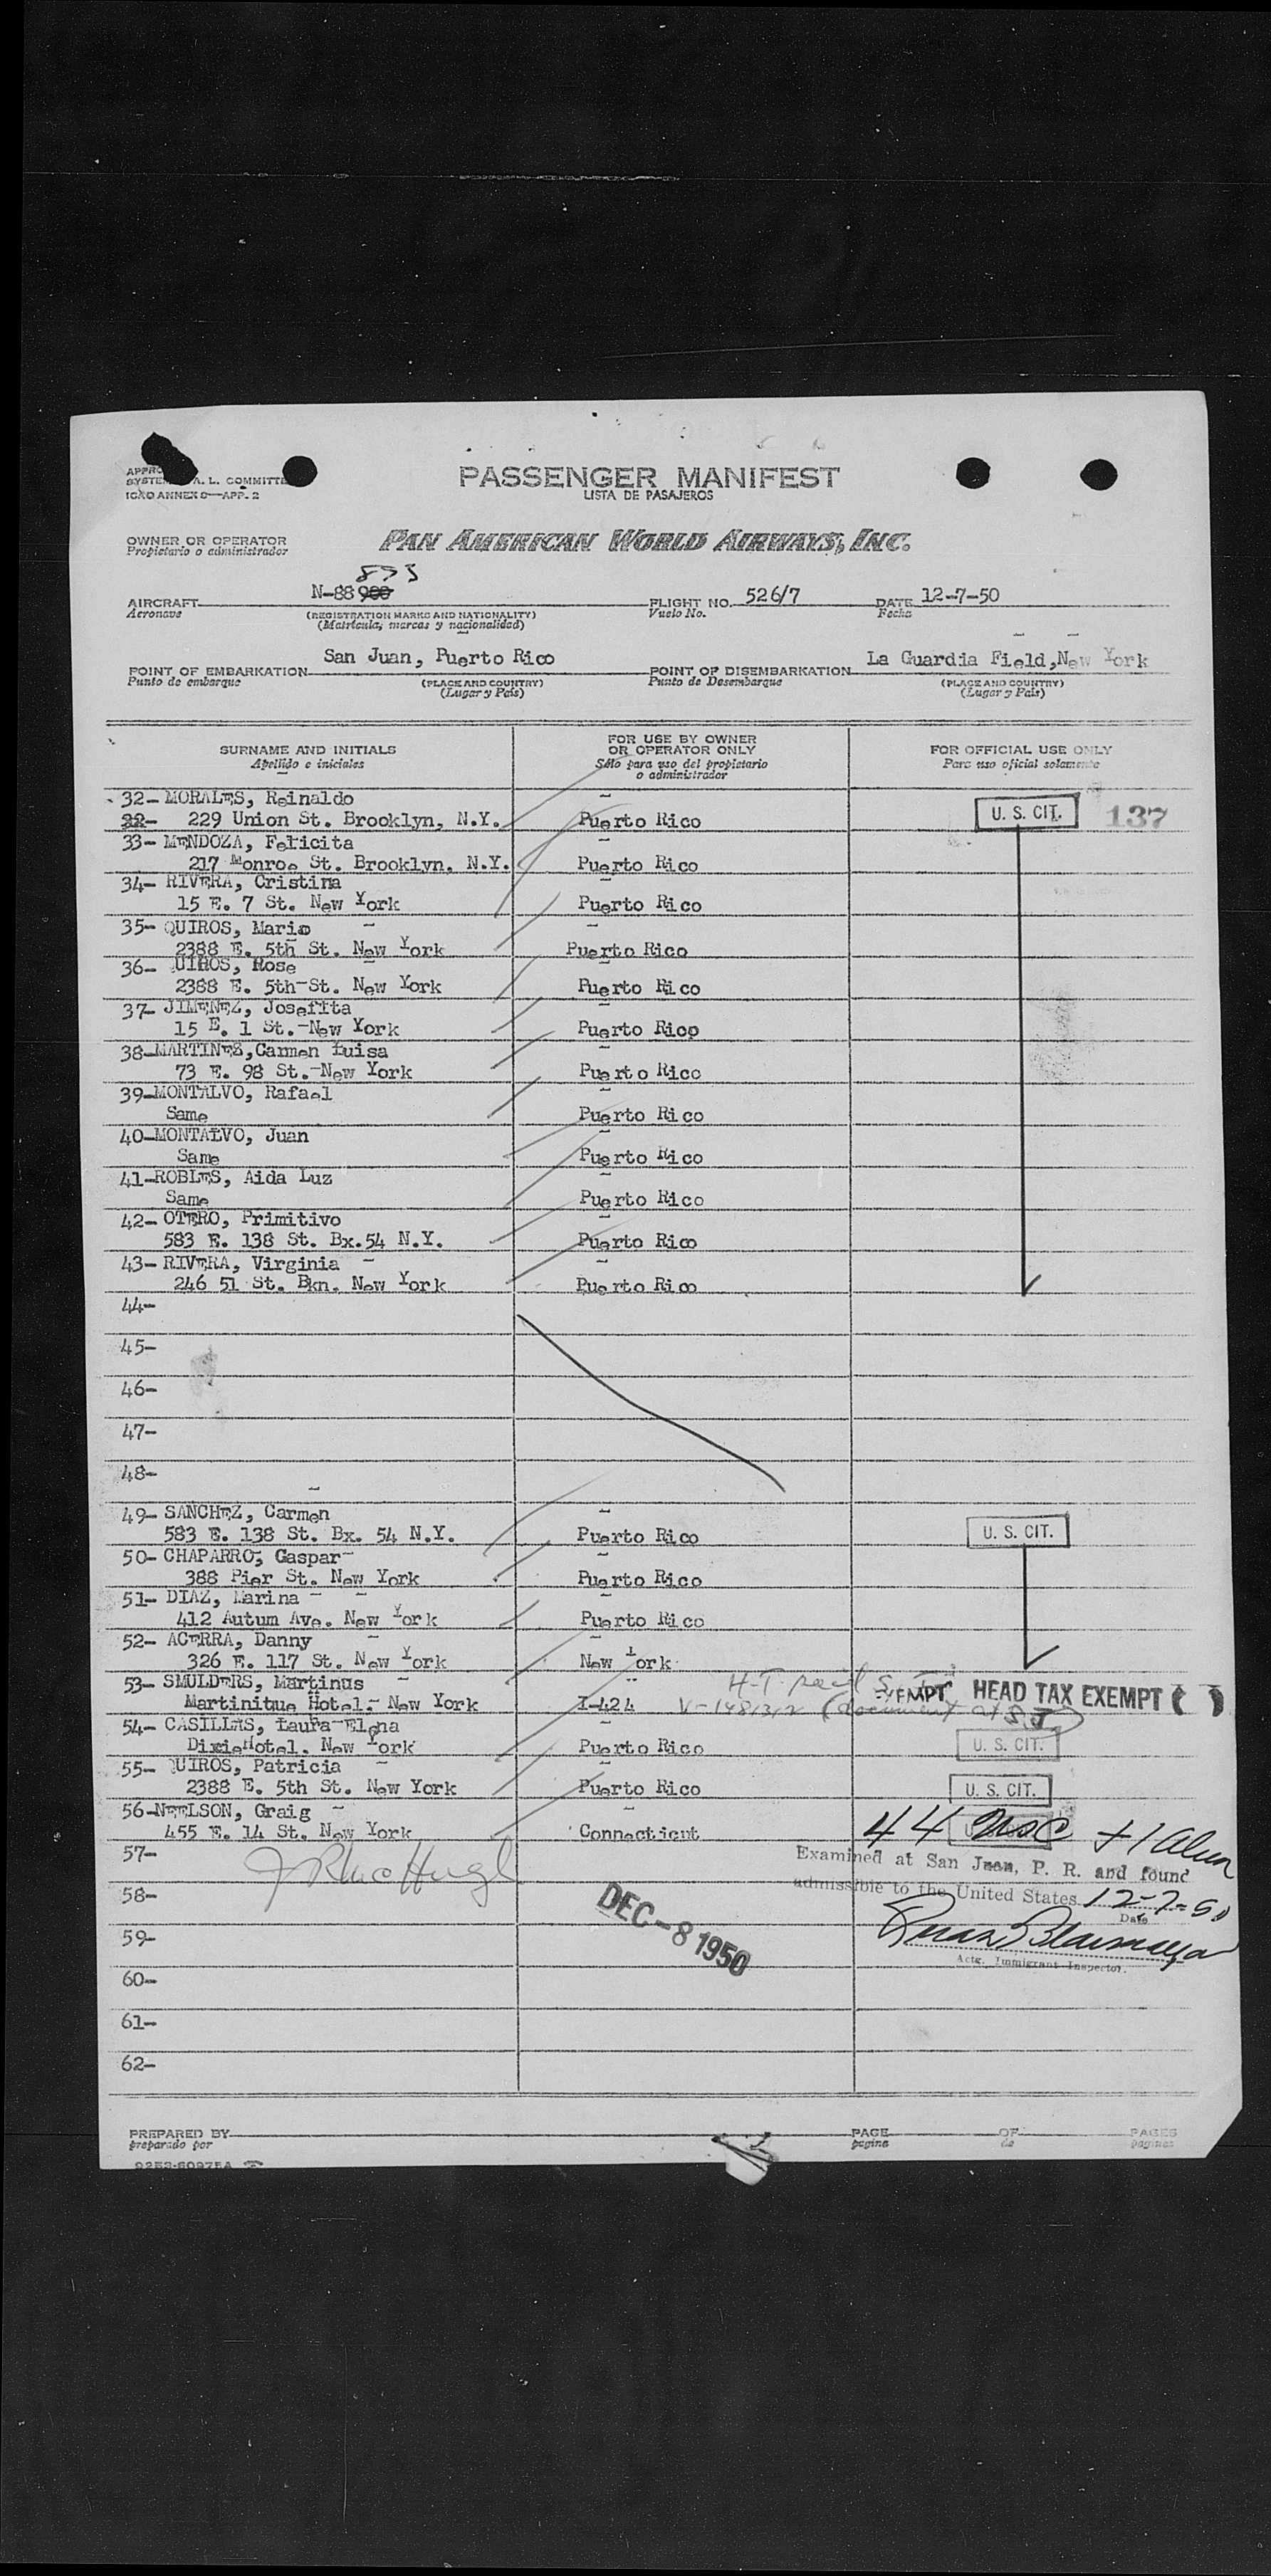 PASSENGER MANIFEST
LISTA DE PASAJEROS
SYSTEM A. L. COMMITTEE
ICAO ANNEX 9—APP. 2
OWNER OR OPERATOR
Propietario o administrador
PAN AMERICAN WORLD AIRWAYS, INC.
873
AIRCRAFT N-88900 FLIGHT NO. 526/7 DATE 12-7-50
Aeronave (REGISTRATION MARKS AND NATIONALITY) Vuelo No. Fecha
(Matrícula, marcas y nacionalidad)
POINT OF EMBARKATION San Juan, Puerto Rico POINT OF DISEMBARKATION La Guardia Field,New York
Punto de embarque (PLACE AND COUNTRY) Punto de Desembarque (PLACE AND COUNTRY)
(Lugar y País) (Lugar y País)
SURNAME AND INITIALS
Apellido e iniciales
FOR USE BY OWNER
OR OPERATOR ONLY
Sólo para uso del propietario
o administrador
FOR OFFICIAL USE ONLY
Para uso oficial solamente
32- MORALES, Reinaldo
22- 229 Union St. Brooklyn, N.Y. Puerto Rico U. S. CIT. 137
33- MENDOZA, Felicita
217 Monroe St. Brooklyn. N.Y. Puerto Rico
34- RIVERA, Cristina
15 E. 7 St. New York Puerto Rico
35- QUIROS, Mario
2388 E. 5th St. New York Puerto Rico
36- QUIROS, Rose
2388 E. 5th-St. New York Puerto Rico
37- JIMENEZ, Josefita
15 E. 1 St.-New York Puerto Rico
38-MARTINES,Carmen Luisa
73 E. 98 St.-New York Puerto Rico
39-MONTALVO, Rafael
Same Puerto Rico
40-MONTALVO, Juan
Same Puerto Rico
41-ROBLES, Aida Luz
Same Puerto Rico
42- OTERO, Primitivo
583 E. 138 St. Bx.54 N.Y. Puerto Rico
43- RIVERA, Virginia
246 51 St. Bkn. New York Puerto Rico
44-
45-
46-
47-
48-
49- SANCHEZ, Carmen
583 E. 138 St. Bx. 54 N.Y. Puerto Rico U. S. CIT.
50- CHAPARRO, Gaspar
388 Pier St. New York Puerto Rico
51- DIAZ, Marina
412 Autum Ave. New York Puerto Rico
52- ACERRA, Danny
326 E. 117 St. New York New York
53- SMULDERS, Martinus H-T paid S. J. EXEMPT HEAD TAX EXEMPT ( )
Martinitue Hotel.- New York I-424 V-1481312 (document at S.J.)
54- CASILLAS, Laura Elena
DixieHotel. New York Puerto Rico U. S. CIT.
55- QUIROS, Patricia
2388 E. 5th St. New York Puerto Rico U. S. CIT.
56-NEELSON, Graig
455 E. 14 St. New York Connecticut 44 USC + 1 alien
57- Examined at San Juan, P. R. and found
58- admissible to the United States 12-7-50
DEC -8 1950 Date
59-
Actg. Immigrant Inspector.
60-
61-
62-
PREPARED BY PAGE OF PAGES
preparado por pagina de paginas